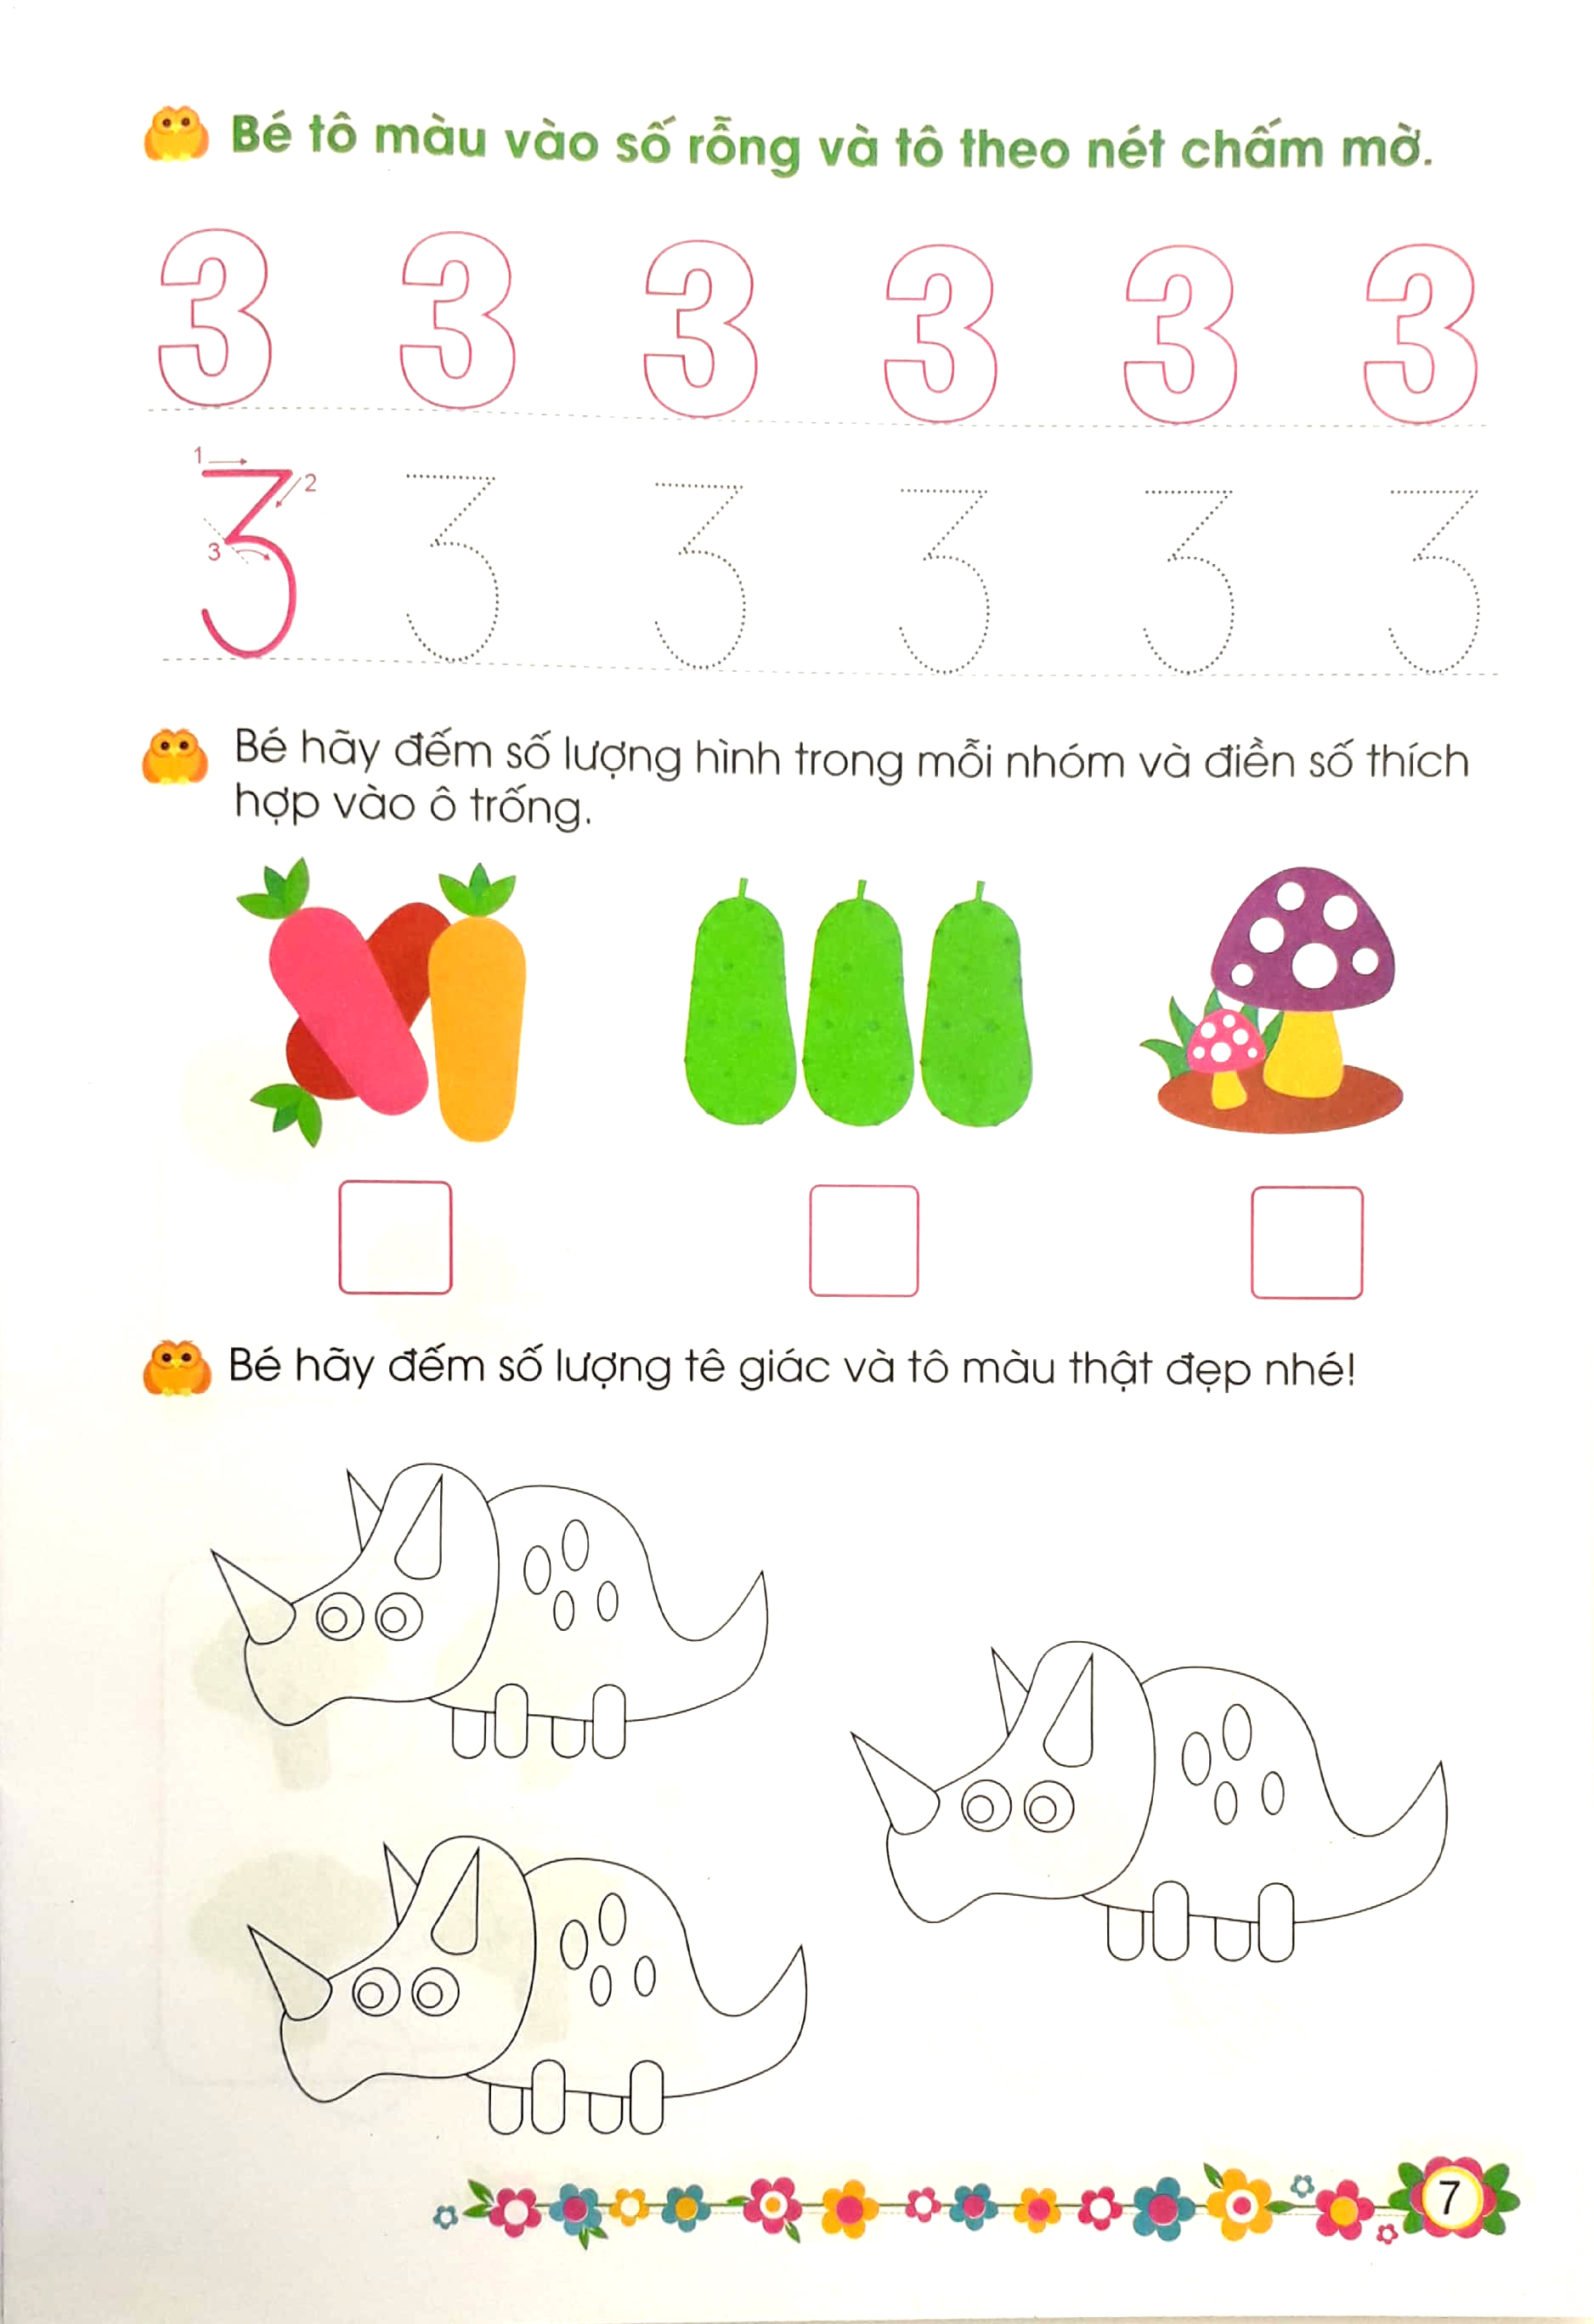 Bé tô màu vào số rỗng và tô theo nét chấm mờ.
3 3 3 3 3 3
1
2
3
3 3 3 3 3 3
Bé hãy đếm số lượng hình trong mỗi nhóm và điền số thích
hợp vào ô trống.
Bé hãy đếm số lượng tê giác và tô màu thật đẹp nhé!
7